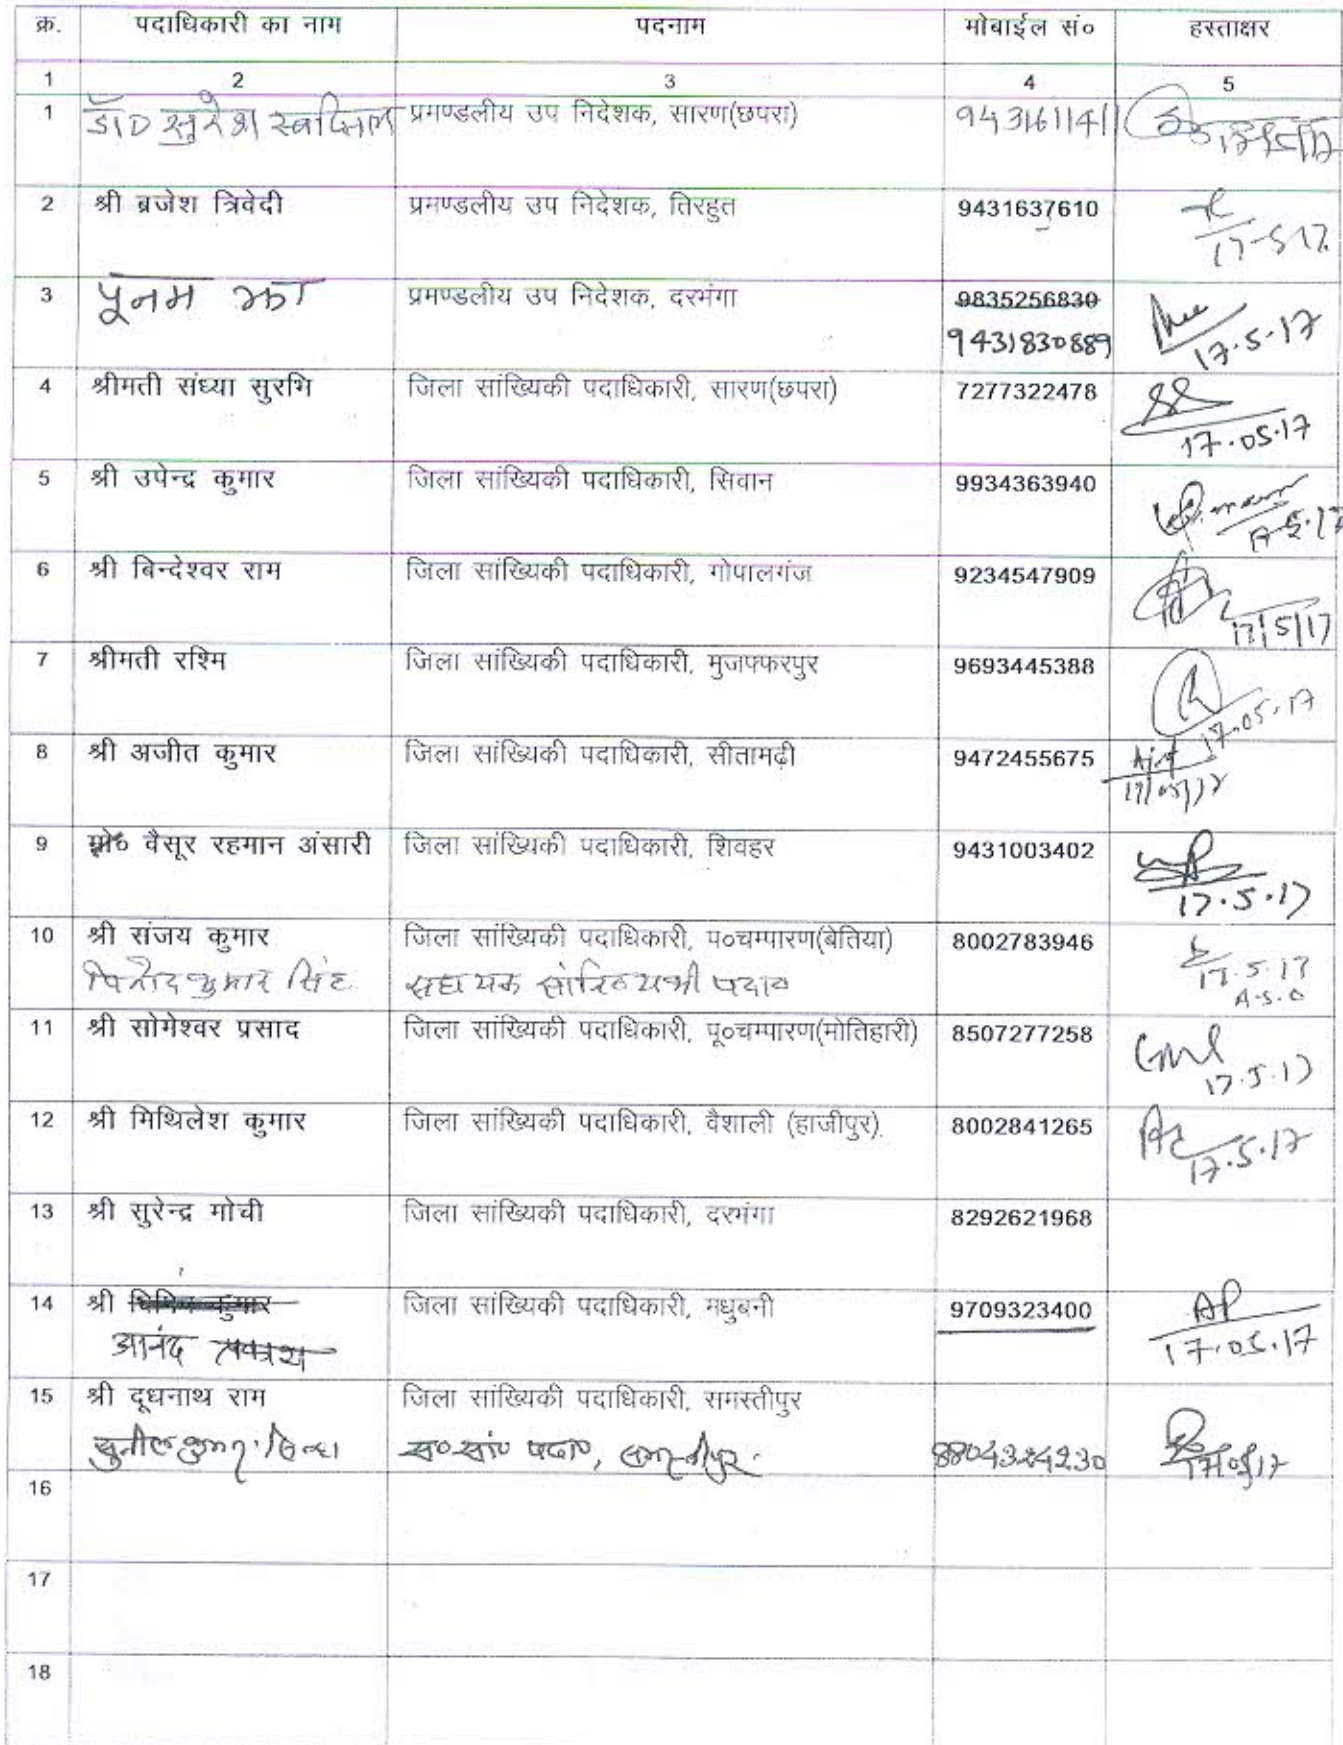 क्र. पदाधिकारी का नाम पदनाम मोबाईल सं० हस्ताक्षर
1 2 3 4 5
1 डॉ० सुरेश प्रमण्डलीय उप निदेशक, सारण(छपरा) 9431611411
2 श्री ब्रजेश त्रिवेदी प्रमण्डलीय उप निदेशक, तिरहुत 9431637610
17-5-17
3 पूनम झा प्रमण्डलीय उप निदेशक, दरभंगा 9835256830
9431830889 17.5.17
4 श्रीमती संध्या सुरभि जिला सांख्यिकी पदाधिकारी, सारण(छपरा) 7277322478
17.05.17
5 श्री उपेन्द्र कुमार जिला सांख्यिकी पदाधिकारी, सिवान 9934363940
17.5.17
6 श्री बिन्देश्वर राम जिला सांख्यिकी पदाधिकारी, गोपालगंज 9234547909
17/5/17
7 श्रीमती रश्मि जिला सांख्यिकी पदाधिकारी, मुजफ्फरपुर 9693445388
17.05.17
8 श्री अजीत कुमार जिला सांख्यिकी पदाधिकारी, सीतामढ़ी 9472455675 Ajit
17/05/17
9 मो० वैसूर रहमान अंसारी जिला सांख्यिकी पदाधिकारी, शिवहर 9431003402
17.5.17
10 श्री संजय कुमार जिला सांख्यिकी पदाधिकारी, प०चम्पारण(बेतिया) 8002783946
विनोद कुमार सिंह सहायक सांख्यिकी पदा० 17.5.17
A.S.O
11 श्री सोमेश्वर प्रसाद जिला सांख्यिकी पदाधिकारी, पू०चम्पारण(मोतिहारी) 8507277258
17.5.17
12 श्री मिथिलेश कुमार जिला सांख्यिकी पदाधिकारी, वैशाली (हाजीपुर). 8002841265
17.5.17
13 श्री सुरेन्द्र मोची जिला सांख्यिकी पदाधिकारी, दरभंगा 8292621968
14 श्री कुमार जिला सांख्यिकी पदाधिकारी, मधुबनी 9709323400 AP
आनंद प्रकाश 17.05.17
15 श्री दूधनाथ राम जिला सांख्यिकी पदाधिकारी, समस्तीपुर
सुनील कुमार सिन्हा स० सां० पदा०, समस्तीपुर 17/05/17
16
17
18